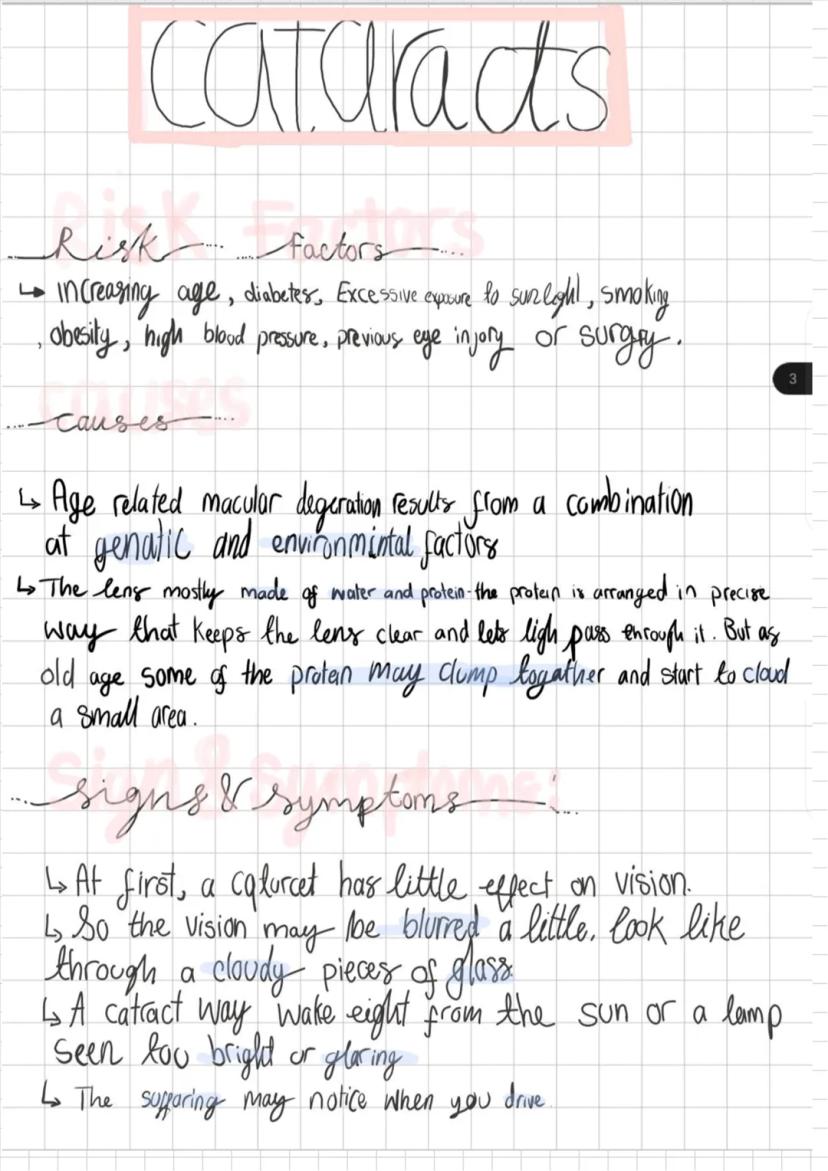 cataracts
Risk Factors
↳ increasing age, diabetes, Excessive exposure to sunlight, smoking
, obesity, high blood pressure, previous eye injory or surgry.
3
causes
↳ Age related macular degeration results from a combination
at genatic and environmintal factors
↳ The lens mostly made of water and protein-the protein is arranged in precise
way that keeps the lens clear and lets ligh pass through it. But as
old age some of the protein may clump togather and start to cloud
a small area.
signs & symptoms
↳ At first, a caturcet has little effect on vision.
↳ So the vision may be blurred a little, look like
through a cloudy pieces of glass
↳ A catract way wake eight from the sun or a lamp
seen too bright or glaring
↳ The suffaring may notice when you drive